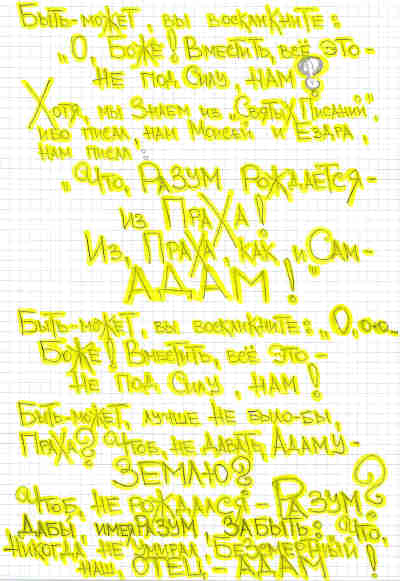 Быть-может, вы воскликните:
„О, Боже! Вместить, всё это-
не под Силу, нам?
Хотя, мы Знаем из „Святых Писаний",
ибо писал, нам Моисей и Езара,
нам писал:
„Что, Разум рождается-
из Праха!
Из, Праха, как и Сам-
АДАМ!"
Быть-может, вы воскликните: „О, о-о...
Боже! Вместить, всё это-
не под Силу, нам!
Быть-может, лучше не было-бы,
Праха? Чтоб, не давать, Адаму-
ЗЕМЛЮ?
Чтоб, не рождался- Разум?
Дабы, имея Разум, Забыть: Что,
никогда не умирал, Безсмертный
наш, Отец,- Адам!